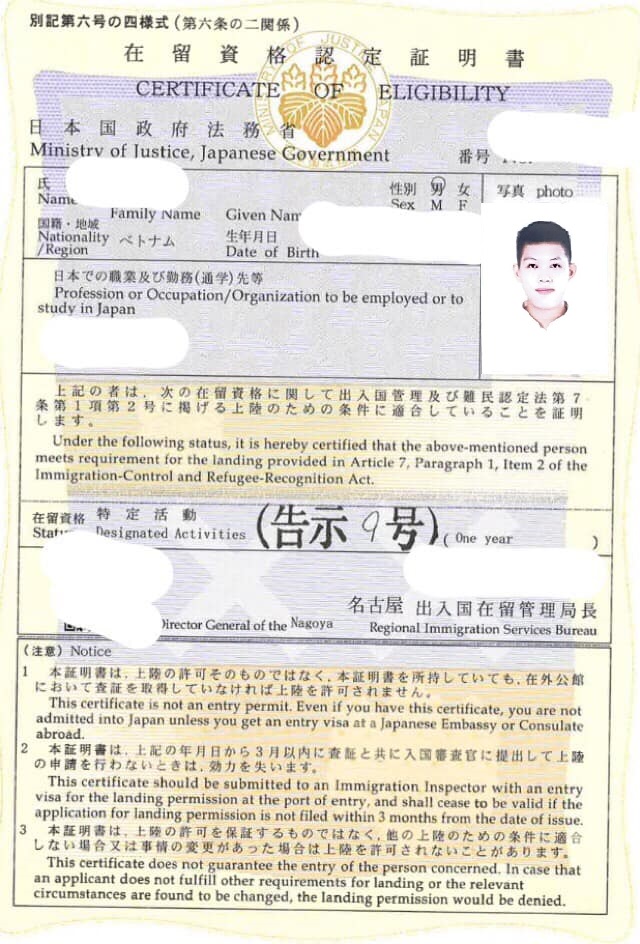 別記第六号の四様式(第六条の二関係)
在留資格認定証明書
CERTIFICATE OF ELIGIBILITY
MINISTRY OF JUSTICE JAPAN
日本国政府法務省
Ministry of Justice, Japanese Government
番号
氏
Name
Family Name Given
性別 男 女
Sex M F
写真 photo
国籍・地域
Nationality
/Region
ベトナム
生年月日
Date of Birth
日本での職業及び勤務(通学)先等
Profession or Occupation/Organization to be employed or to
study in Japan
上記の者は,次の在留資格に関して出入国管理及び難民認定法第7
条第1項第2号に掲げる上陸のための条件に適合していることを証明
します。
Under the following status, it is hereby certified that the above-mentioned person
meets requirement for the landing provided in Article 7, Paragraph 1, Item 2 of the
Immigration-Control and Refugee-Recognition Act.
在留資格 特定活動
Designated Activities
(告示9号)
( One year )
名古屋 出入国在留管理局長
Director General of the Nagoya Regional Immigration Services Bureau
(注意) Notice
1 本証明書は,上陸の許可そのものではなく,本証明書を所持していても,在外公館
において査証を取得していなければ上陸を許可されません。
This certificate is not an entry permit. Even if you have this certificate, you are not
admitted into Japan unless you get an entry visa at a Japanese Embassy or Consulate
abroad.
2 本証明書は,上記の年月日から3月以内に査証と共に入国審査官に提出して上陸
の申請を行わないときは,効力を失います。
This certificate should be submitted to an Immigration Inspector with an entry
visa for the landing permission at the port of entry, and shall cease to be valid if the
application for landing permission is not filed within 3 months from the date of issue.
3 本証明書は,上陸の許可を保証するものではなく,他の上陸のための条件に適合
しない場合又は事情の変更があった場合は上陸を許可されないことがあります。
This certificate does not guarantee the entry of the person concerned. In case that
an applicant does not fulfill other requirements for landing or the relevant
circumstances are found to be changed, the landing permission would be denied.